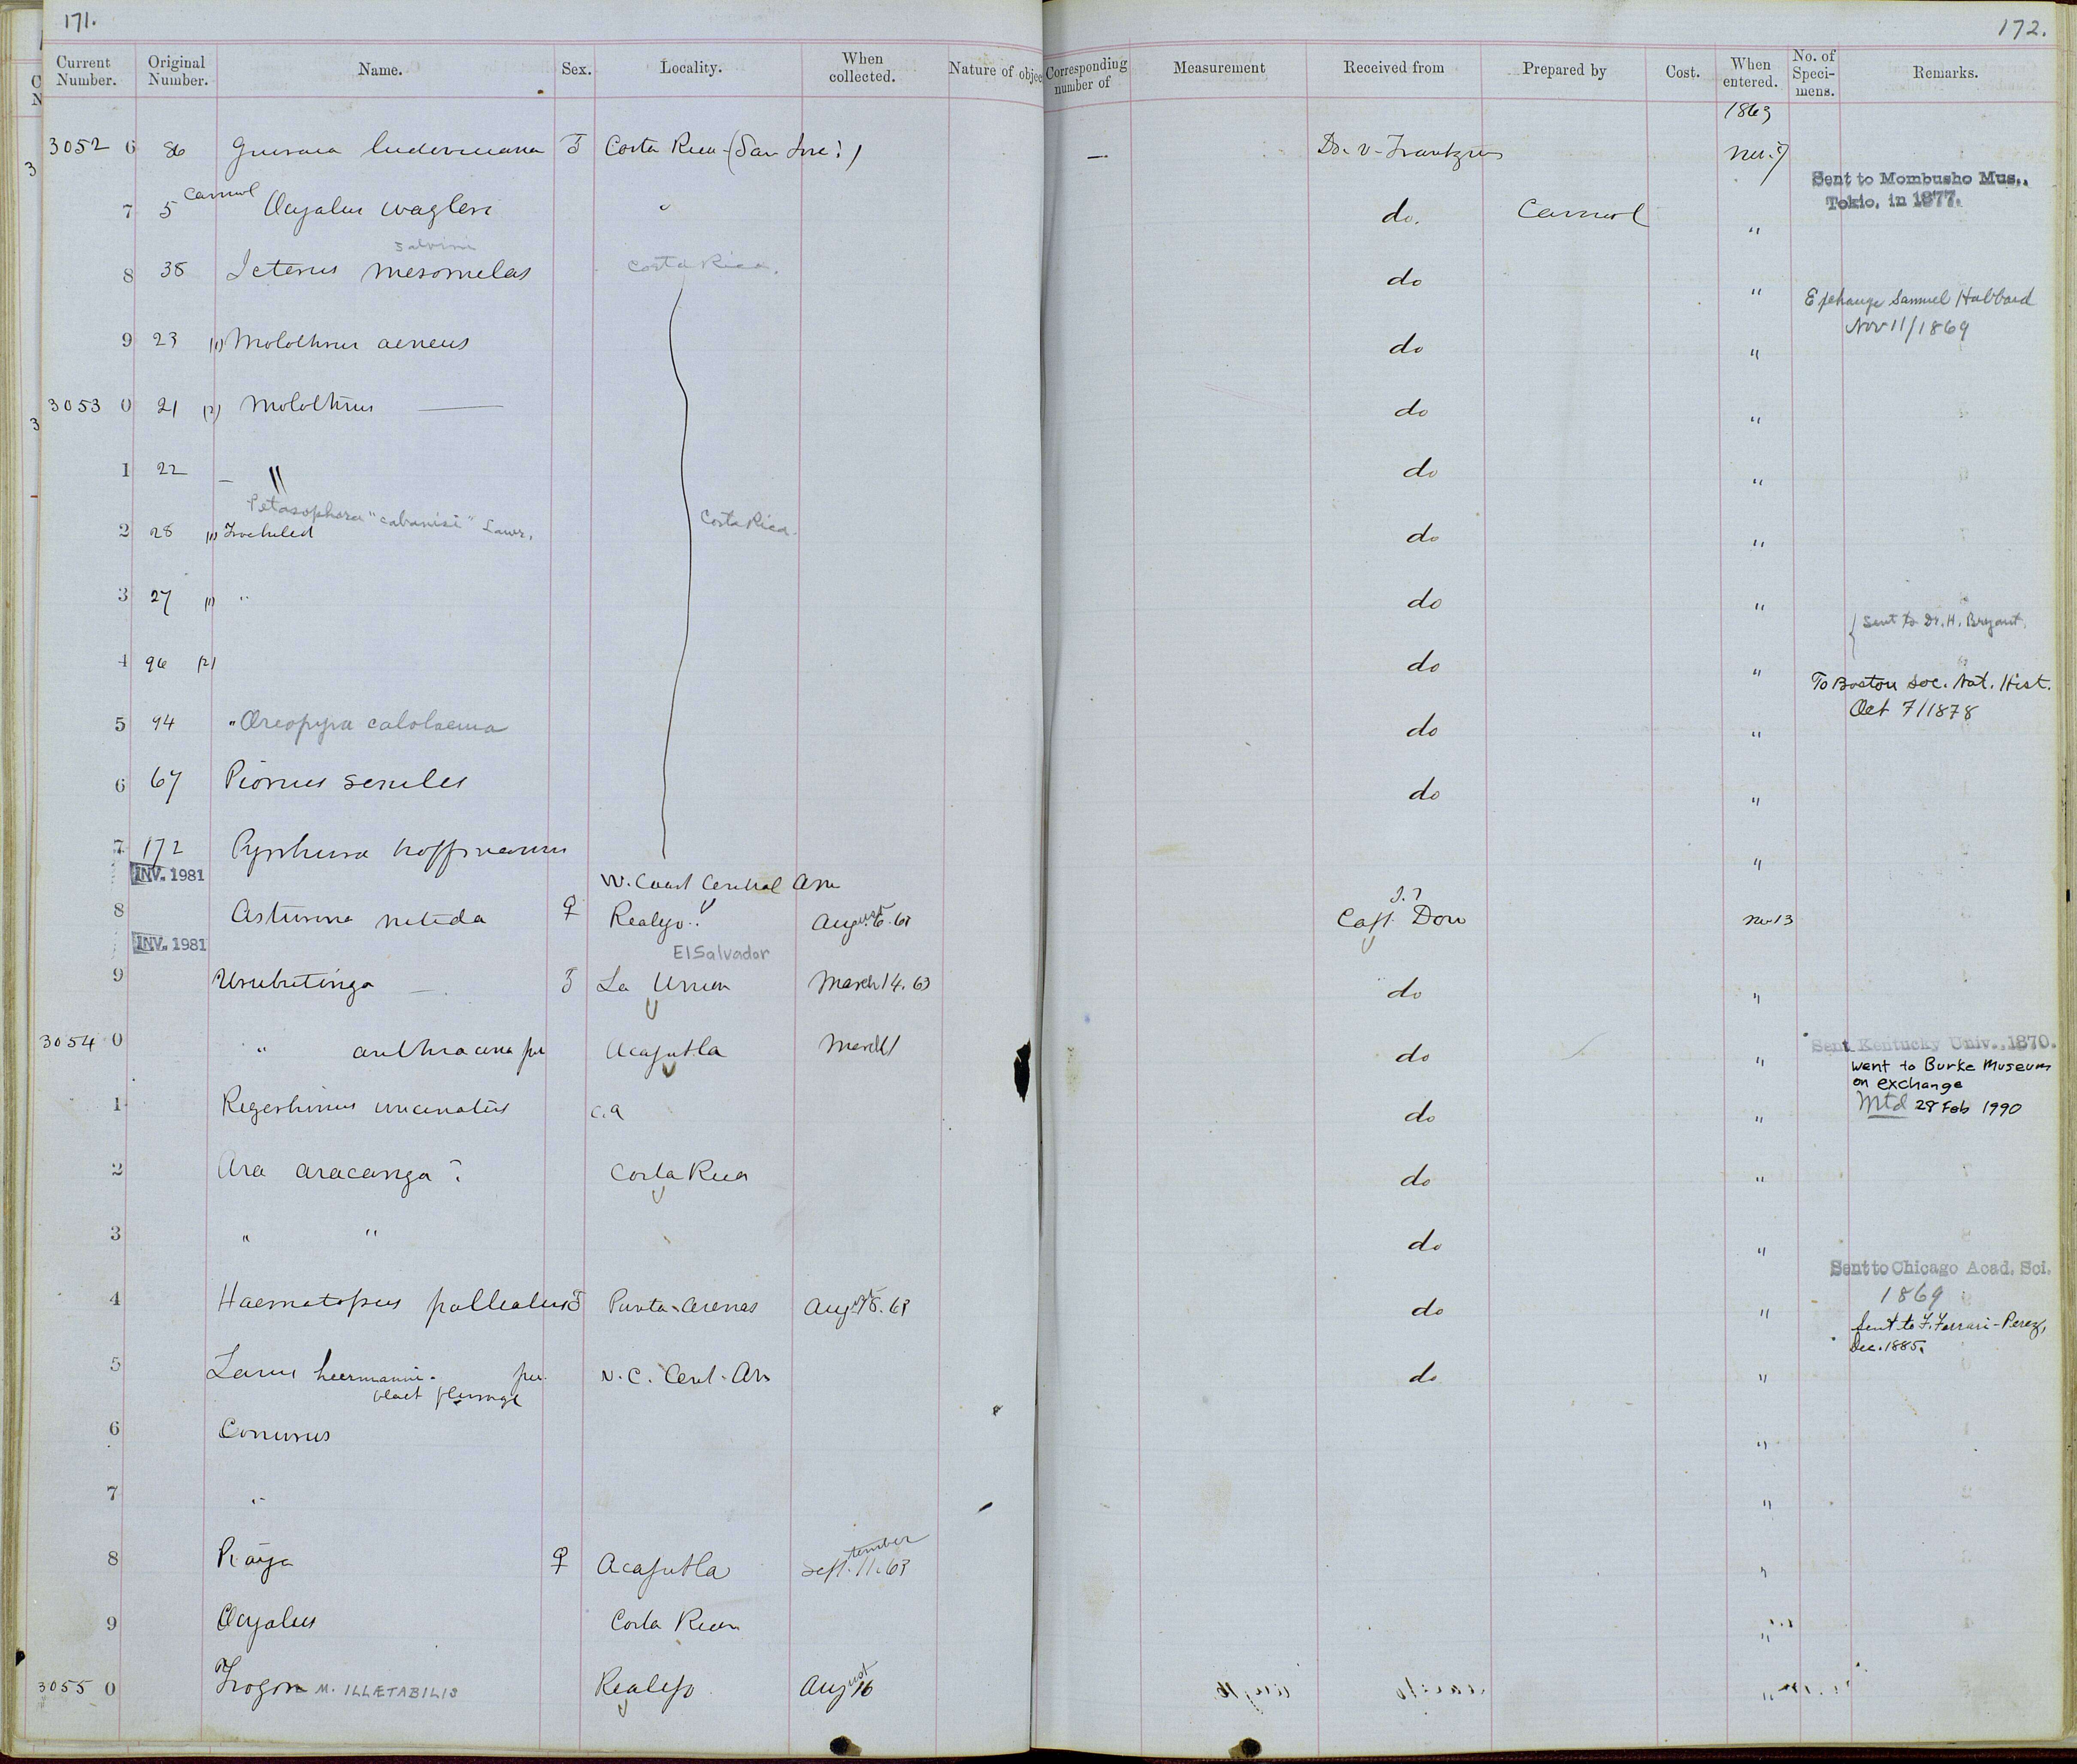 171.
172.
Current Number. Original Number. Name. Sex. Locality. When collected. Nature of objec Corresponding number of Measurement Received from Prepared by Cost. When entered. No. of Speci-mens. Remarks.
1863
3052 6 86 Guiraca ludoviciana Costa Rica (San Jose?) — Dr. v. Frantzius Nov. 9
Sent to Mombusho Mus., Tokio, in 1877.
7 5 Carmiol Ocyalus wagleri " do. Carmiol "
salvini
8 38 Icterus mesomelas Costa Rica. do "
Exchange Samuel Hubbard
Nov 11/1869
9 23 (1) Molothrus aeneus do "
3053 0 21 (2) Molothrus — do "
1 22 — " do "
Petasophora "cabanisi" Lawr.
2 28 (1) Trochilid Costa Rica. do "
3 27 (1) " do "
{ Sent to Dr. H. Bryant.
4 96 (2) do "
To Boston Soc. Nat. Hist.
Oct 7/1878
5 94 " Oreopyra calolaema do "
6 67 Pionus senilis do "
7 172 Pyrrhura hoffmanni "
INV. 1981
W. Coast Central Am
J. ?
8 Asturina nitida ♀ Realejo. August 6. 63 Capt. Dow Nov 13
INV. 1981
El Salvador
9 Urubitinga — La Union March 14. 63 do "
3054 0 " anthracina Acajutla March 1 do "
Sent Kentucky Univ., 1870.
went to Burke Museum
on exchange
Mtd 28 Feb 1990
1 Regerhinus uncinatus C.A do "
2 Ara aracanga? Costa Rica do "
3 " " do "
Sent to Chicago Acad. Sci.
1869
4 Haematopus palliatus Punta Arenas August 8. 63 do "
Sent to F. Ferrari-Perez,
Dec. 1885.
5 Larus heermanni. W. C. Cent. Am do "
black plumage
6 Conurus "
7 " "
8 Piaya ♀ Acajutla September 11. 63 "
9 Ocyalus Costa Rica "
3055 0 Trogon M. ILLÆTABILIS Realejo August 16 "